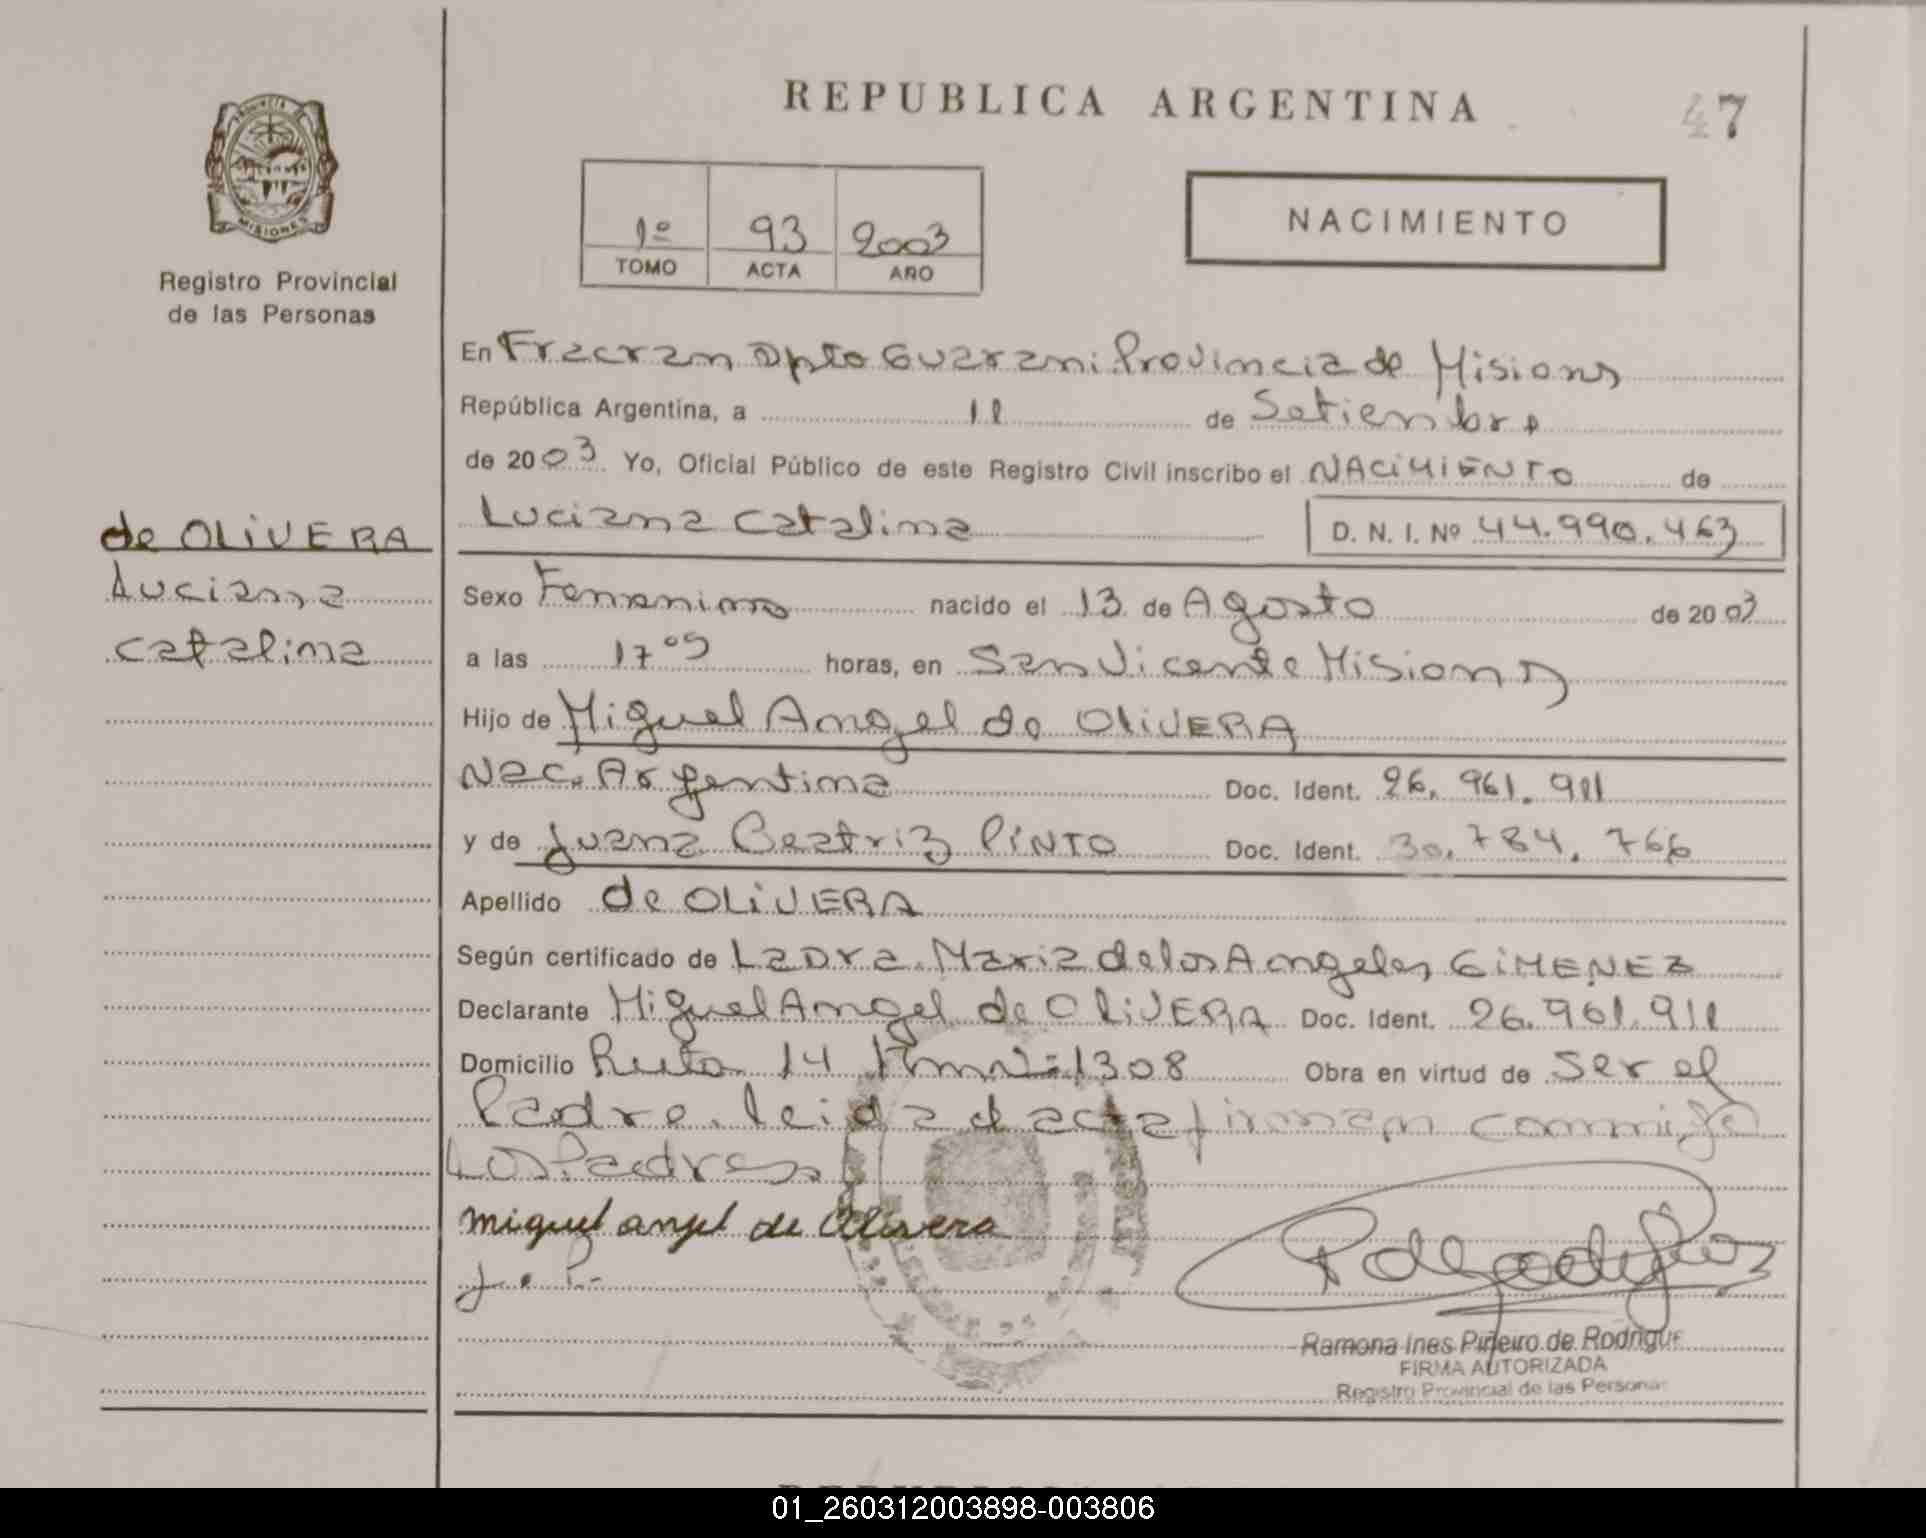 REPUBLICA ARGENTINA
47
PROVINCIA DE
MISIONES
Registro Provincial
de las Personas
1º 93 2003
TOMO ACTA AÑO
NACIMIENTO
En Fracran Dpto Guarani Provincia de Misiones
República Argentina, a 11 de Setiembre
de 2003 Yo, Oficial Público de este Registro Civil inscribo el NACIMIENTO de
Luciana Catalina D. N. I. Nº 44.990.463
de OLIVERA
Luciana
Catalina
Sexo Femenino nacido el 13 de Agosto de 2003
a las 17 05 horas, en San Vicente Misiones
Hijo de Miguel Angel de OLIVERA
Nac. Argentina Doc. Ident. 26.961.911
y de Juana Beatriz PINTO Doc. Ident. 30.784.766
Apellido de OLIVERA
Según certificado de La Dra. Maria de los Angeles GIMENEZ
Declarante Miguel Angel de OLIVERA Doc. Ident. 26.961.911
Domicilio Ruta 14 Km Nº 1308 Obra en virtud de ser el
Padre. leida el acta firman conmigo
Los Padres
miguel angel de Olivera
J. P.
Ramona Ines Piñeiro de Rodrigue
FIRMA AUTORIZADA
Registro Provincial de las Personas
01_260312003898-003806